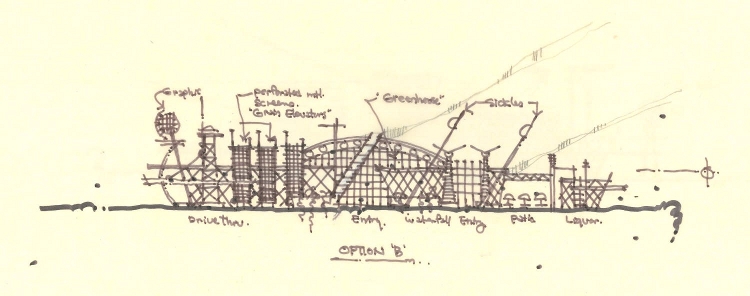 Graphic
perforated mtl.
Screens.
"Grain Elevators"
"Greenhouse"
Sickles
Drive Thru.
Entry.
Waterfall
Entry
Patio
Liquor.
OPTION 'B'